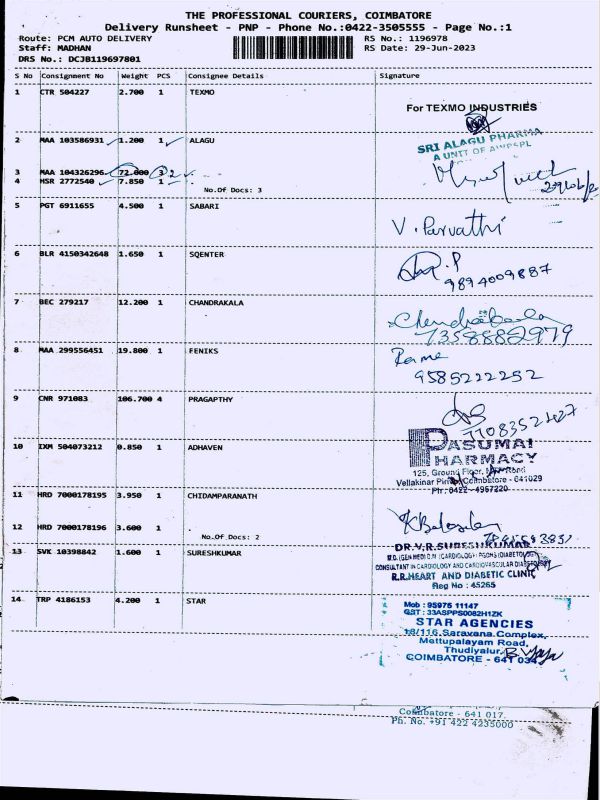 THE PROFESSIONAL COURIERS, COIMBATORE
Delivery Runsheet - PNP - Phone No.:0422-3505555 - Page No.:1
Route: PCM AUTO DELIVERY RS No.: 1196978
Staff: MADHAN RS Date: 29-Jun-2023
DRS No.: DCJB119697801
S No Consignment No Weight PCS Consignee Details Signature
1 CTR 504227 2.700 1 TEXMO
For TEXMO INDUSTRIES
2 MAA 103586931 1.200 1 ALAGU
SRI ALAGU PHARMA
A UNIT OF AWPSPL
3 MAA 104326296 72.000 3 2
4 HSR 2772540 7.850 1
No.Of Docs: 3
5 PGT 6911655 4.500 1 SABARI
V. Parvathi
6 BLR 4150342648 1.650 1 SQENTER
9894009887
7 BEC 279217 12.200 1 CHANDRAKALA
Chandrakala
7358882979
8 MAA 299556451 19.800 1 FENIKS
Rame
9585222252
9 CNR 971083 106.700 4 PRAGAPTHY
10 IXM 504073212 0.850 1 ADHAVEN
PASUMAI
PHARMACY
125, Ground Floor,
Coimbatore - 641029
Ph: 0422-4967220
11 HRD 7000178195 3.950 1 CHIDAMPARANATH
12 HRD 7000178196 3.600 1
No.Of Docs: 2
13 SVK 10398842 1.600 1 SURESHKUMAR
DR.V.R.SURESHKUMAR
CONSULTANT IN CARDIOLOGY AND CARDIOVASCULAR
R.R.HEART AND DIABETIC CLINIC
Reg No : 45265
14 TRP 4186153 4.200 1 STAR
Mob : 95975 11147
GST : 33ASPPS0082H1ZK
STAR AGENCIES
18/116, Saravana Complex,
Mettupalayam Road,
Thudiyalur,
COIMBATORE - 641 034
Coimbatore - 641 017.
Ph. No. +91 422 4235000